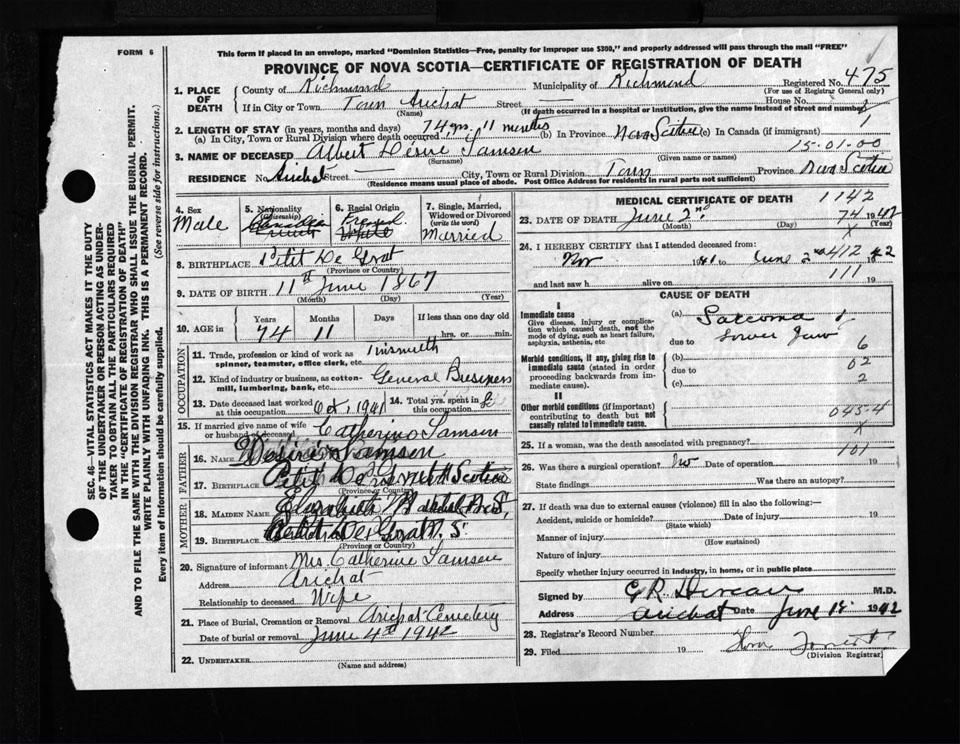 FORM 6
This form if placed in an envelope, marked "Dominion Statistics—Free, penalty for improper use $300," and properly addressed will pass through the mail "FREE"
PROVINCE OF NOVA SCOTIA—CERTIFICATE OF REGISTRATION OF DEATH
SEC. 46—VITAL STATISTICS ACT MAKES IT THE DUTY
OF THE UNDERTAKER OR PERSON ACTING AS UNDER-
TAKER TO OBTAIN ALL THE PARTICULARS REQUIRED
IN THE "CERTIFICATE OF REGISTRATION OF DEATH"
AND TO FILE THE SAME WITH THE DIVISION REGISTRAR WHO SHALL ISSUE THE BURIAL PERMIT.
WRITE PLAINLY WITH UNFADING INK. THIS IS A PERMANENT RECORD.
Every item of Information should be carefully supplied. (See reverse side for instructions.)
1. PLACE OF DEATH
County of Richmond Municipality of Richmond Registered No. 475
(For use of Registrar General only)
If in City or Town Town Arichat Street — House No.
(Name) (If death occurred in a hospital or institution, give the name instead of street and number)
2. LENGTH OF STAY (in years, months and days)
(a) In City, Town or Rural Division where death occurred 74 yrs. 11 months (b) In Province Nova Scotia (c) In Canada (if immigrant) 1
3. NAME OF DECEASED Albert Samson 15-01-00
(Surname) (Given name or names)
RESIDENCE No. Arichat Street — City, Town or Rural Division Town Province Nova Scotia
(Residence means usual place of abode. Post Office Address for residents in rural parts not sufficient)
4. Sex
Male
5. Nationality
(Citizenship)
Canadian
6. Racial Origin
French
White
7. Single, Married, Widowed or Divorced
(write the word)
Married
8. BIRTHPLACE Petit De Grat
(Province or Country)
9. DATE OF BIRTH 11th June 1867
(Month) (Day) (Year)
10. AGE in
Years Months Days If less than one day old
74 11 hrs. or min.
OCCUPATION
11. Trade, profession or kind of work as spinner, teamster, office clerk, etc. Tinsmith
12. Kind of industry or business, as cotton-mill, lumbering, bank, etc. General Business
13. Date deceased last worked at this occupation Oct. 1941 14. Total yrs. spent in this occupation
15. If married give name of wife or husband of deceased Catherine Samson
FATHER
16. Name Samson
17. Birthplace Petit De Grat Scotia
(Province or Country)
MOTHER
18. Maiden Name Elizabeth
19. Birthplace Petit De Grat N.S.
(Province or Country)
20. Signature of informant Mrs. Catherine Samson
Address Arichat
Relationship to deceased Wife
21. Place of Burial, Cremation or Removal Arichat Cemetery
Date of burial or removal June 4th 1942
22. UNDERTAKER
(Name and address)
MEDICAL CERTIFICATE OF DEATH 1142
23. DATE OF DEATH June 2nd 74 1942
(Month) (Day) (Year)
X
24. I HEREBY CERTIFY that I attended deceased from:
Nov 1941 to June 2nd 412 42
and last saw h alive on 111 19
CAUSE OF DEATH
I
Immediate cause
Give disease, injury or complication which caused death, not the mode of dying, such as heart failure, asphyxia, asthenia, etc
(a) Sarcoma
due to Lower Jaw 6
Morbid conditions, if any, giving rise to immediate cause (stated in order proceeding backwards from immediate cause).
(b) 02
due to
(c) 2
II
Other morbid conditions (if important) contributing to death but not causally related to immediate cause.
045-4
X
25. If a woman, was the death associated with pregnancy?
101
26. Was there a surgical operation? No Date of operation 19
State findings Was there an autopsy?
27. If death was due to external causes (violence) fill in also the following:—
Accident, suicide or homicide? Date of injury 19
(State which)
Manner of injury
(How sustained)
Nature of injury
Specify whether injury occurred in industry, in home, or in public place
Signed by M.D.
Address Arichat Date June 1942
28. Registrar's Record Number
29. Filed 19
(Division Registrar)